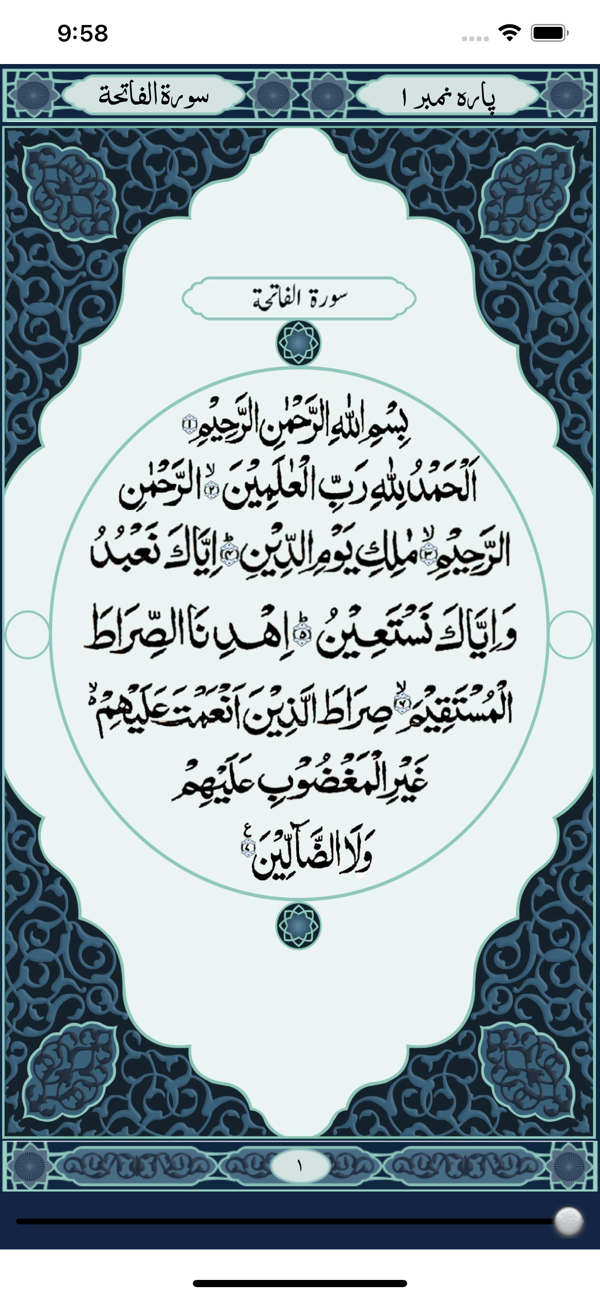 9:58
پارہ نمبر ١
سورۃ الفاتحۃ
سورۃ الفاتحۃ
بِسْمِ اللّٰهِ الرَّحْمٰنِ الرَّحِيْمِ ۝۱
اَلْحَمْدُ لِلّٰهِ رَبِّ الْعٰلَمِيْنَ ۙ۝۲ الرَّحْمٰنِ
الرَّحِيْمِ ۙ۝۳ مٰلِكِ يَوْمِ الدِّيْنِ ؕ۝۴ اِيَّاكَ نَعْبُدُ
وَاِيَّاكَ نَسْتَعِيْنُ ؕ۝۵ اِهْدِنَا الصِّرَاطَ
الْمُسْتَقِيْمَ ۙ صِرَاطَ الَّذِيْنَ اَنْعَمْتَ عَلَيْهِمْ ۙ
غَيْرِ الْمَغْضُوْبِ عَلَيْهِمْ
وَلَا الضَّآلِّيْنَ ع
١